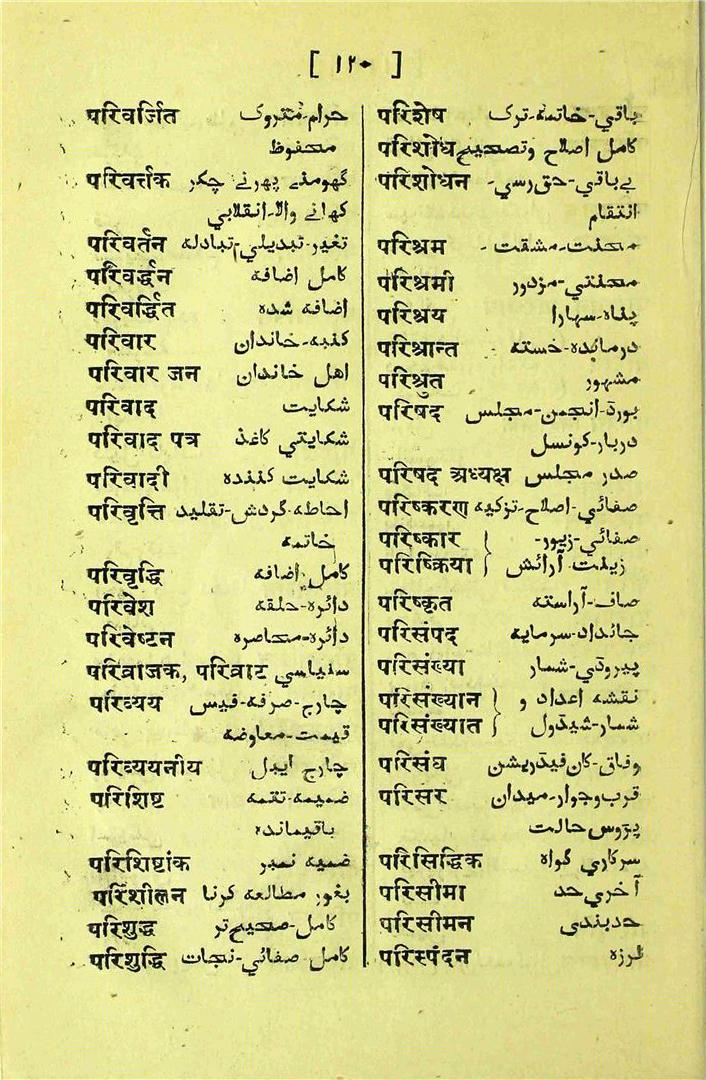 [ ١٢٠ ]
परिवर्जित حرام-متروک
محفوظ
परिवर्त्तक گھومنے پھرنے چکر
کھانے والا-انقلابي
परिवर्तन تغیر-تبدیلي-تبادلہ
परिवर्द्धन کامل اضافہ
परिवर्द्धित اضافہ شدہ
परिवार کنبہ-خاندان
परिवार जन اھل خاندان
परिवाद شکایت
परिवाद पत्र شکایتي کاغذ
परिवादी شکایت کنندہ
परिवृत्ति احاطہ-گردش-تقلید
خاتمہ
परिवृद्धि کامل اضافہ
परिवेश دائرہ-حلقہ
परिवेष्टन دائرہ-محاصرہ
परिव्राजक, परिव्राट سنیاسي
परिव्यय چارج-صرفہ-فیس
قیمت-معاوضہ
परिव्ययनीय چارج ایبل
परिशिष्ट ضمیمہ-تتمہ
باقیماندہ
परिशिष्टांक ضمیہ نمبر
परिशीलन بغور مطالعہ کرنا
परिशुद्ध کامل-صحیح تر
परिशुद्धि کامل صفائي-نجات
परिशेष باقي-خاتمہ-ترک
परिशोध کامل اصلاح وتصحیح
परिशोधन بےباقي-حق رسي-
انتقام
परिश्रम محنت-مشقت-
परिश्रमी محنتي-مزدور
परिश्रय پناہ-سہارا
परिश्रान्त درماندہ-خستہ
परिश्रुत مشہور
परिषद بورڈ-انجمن-مجلس
دربار-کونسل
परिषद अध्यक्ष صدر مجلس
परिष्करण صفائي-اصلاح-تزکیہ
परिष्कार } صفائي-زیور-
परिष्क्रिया } زینت آرائش
परिष्कृत صاف-آراستہ
परिसंपद جائداد-سرمایہ
परिसंख्या پیروتي-شمار
परिसंख्यान } نقشہ اعداد و
परिसंख्यात } شمار-شیڈول
परिसंघ وفاق-کان فیڈریشن
परिसर قرب وجوار-میدان
پڑوس حالت
परिसिद्धिक سرکاري گواہ
परिसीमा آخري حد
परिसीमन حدبندی
परिस्पंदन لرزہ